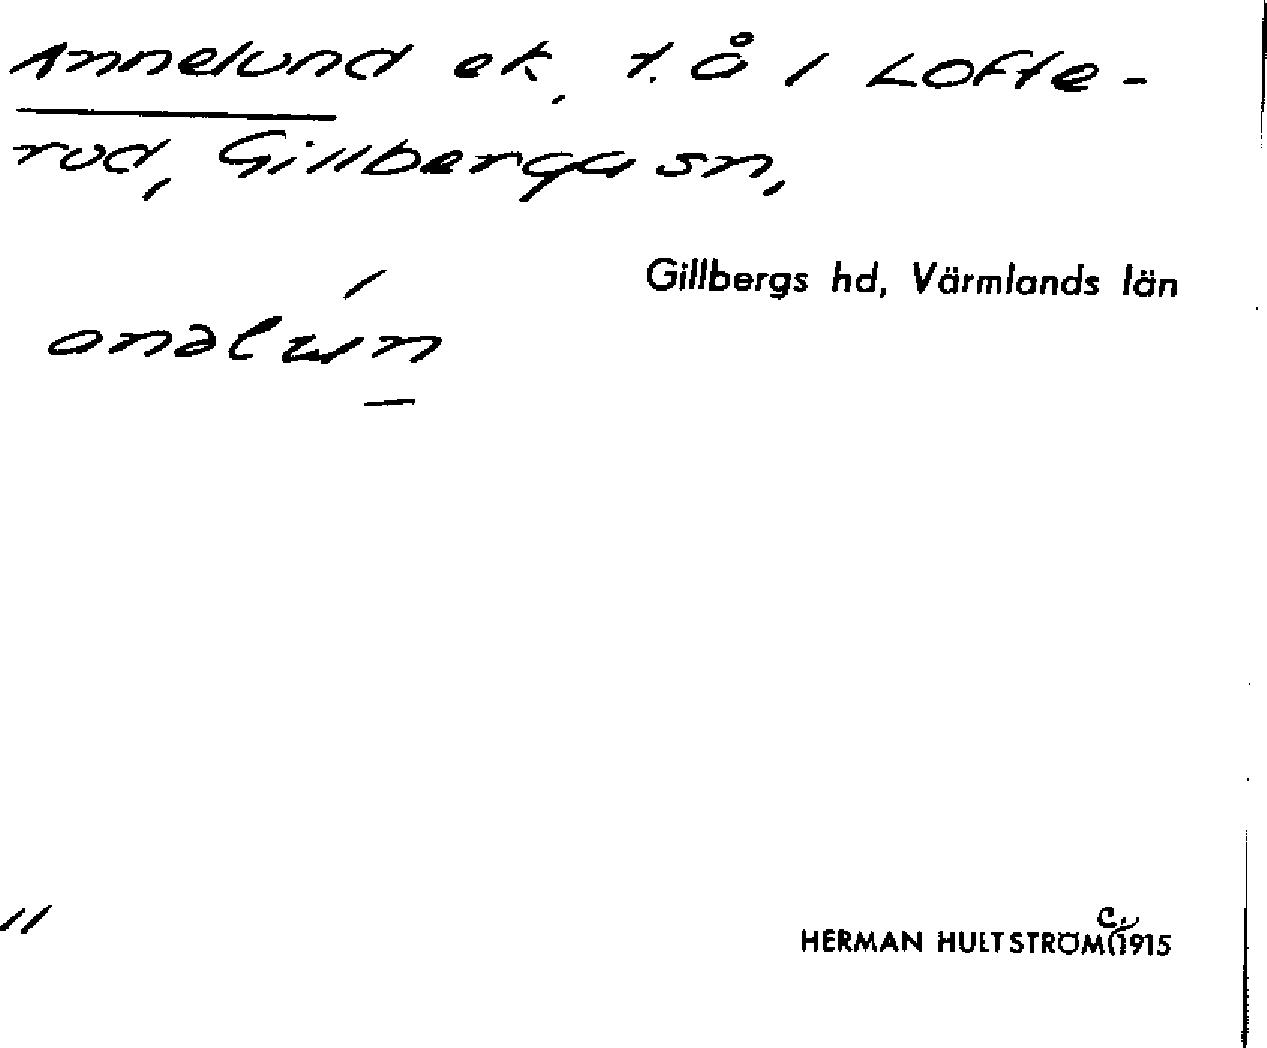 Annelund ek, t. Å i Lofte-
rud, Gillberga sn,
Gillbergs hd, Värmlands län
HERMAN HULTSTRÖM C. 1915